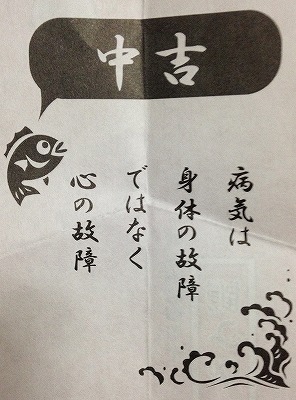 中吉
病気は
身体の故障
ではなく
心の故障